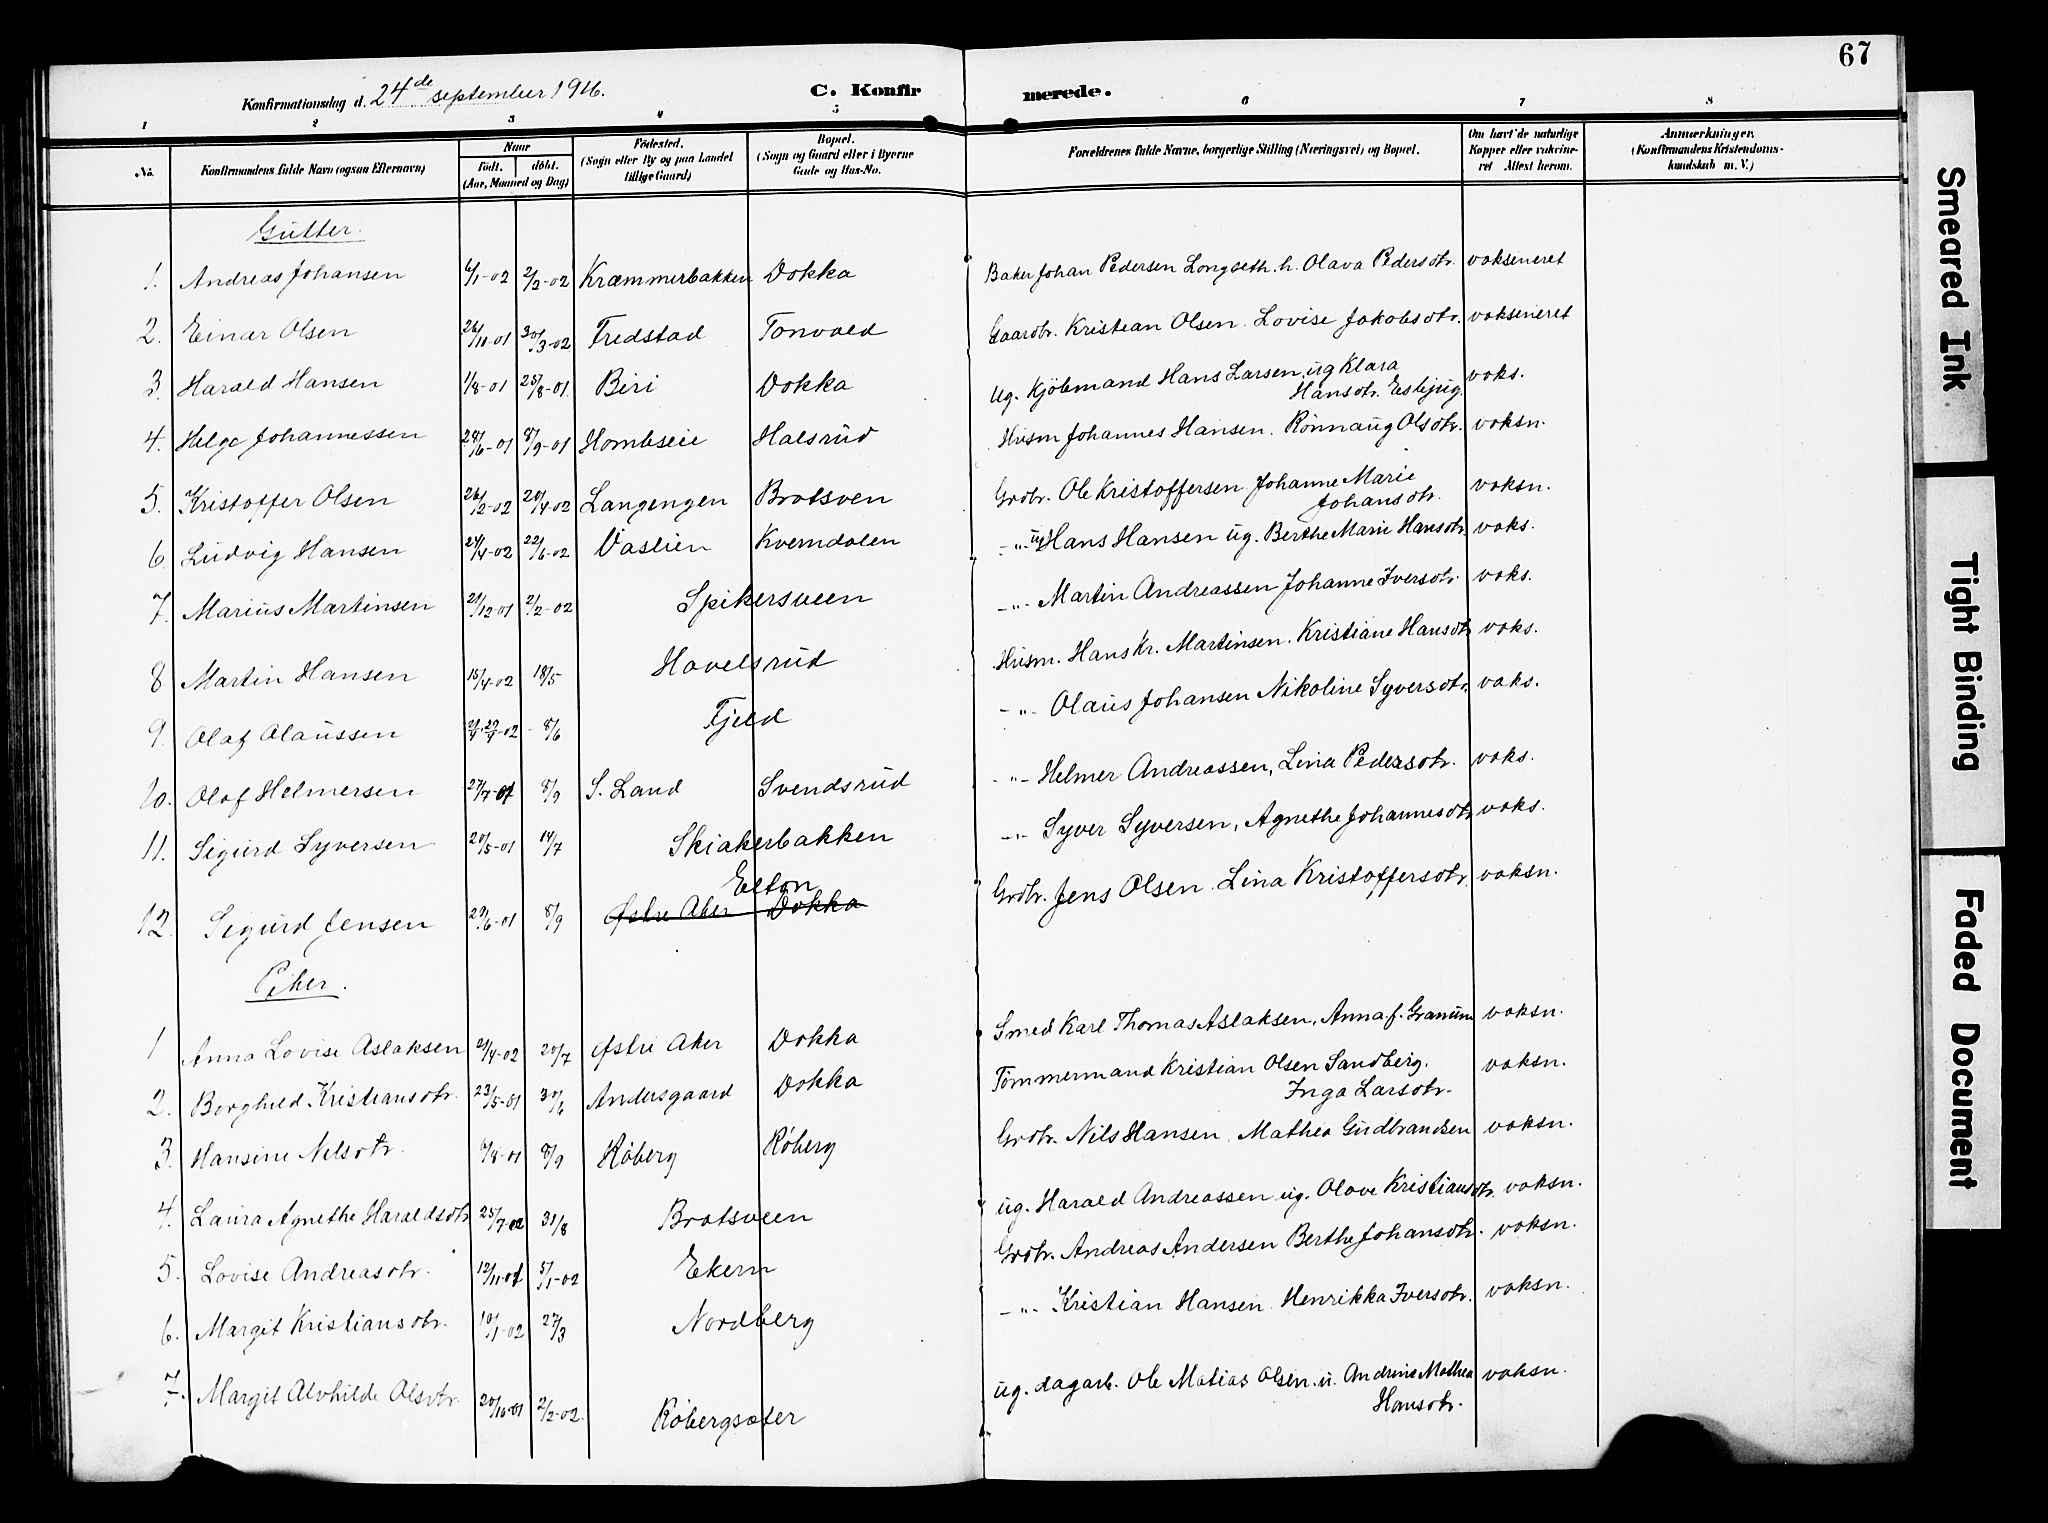 67
Konfirmationsdag d. 24de september 1916.
C. Konfirmerede.
1 2 3 4 5 6 7 8
No.
Konfirmandens fulde Navn (ogsaa Efternavn)
Naar
født. døbt.
(Aar, Maaned og Dag)
Fødested.
(Sogn eller By og paa Landet
tillige Gaard)
Bopæl.
(Sogn og Gaard eller i Byerne
Gade og Hus-No.
Forældrenes fulde Navne, borgerlige Stilling (Næringsvei) og Bopæl.
Om havt de naturlige
Kopper eller vakcine-
ret Attest herom.
Anmærkninger.
(Konfirmandens Kristendoms-
kundskab m. V.)
Gutter.
1. Andreas Johansen 6/1-02 2/2-02 Kræmmerbakken Dokka Baker Johan Pedersen Longseth. h. Olava Pedersdtr. vaksineret
2. Einar Olsen 26/10-01 30/3-02 Fredstad Tonvold Gaardbr. Kristian Olsen. Lovise Jakobsdtr. vaksineret
3. Harald Hansen 1/8-01 25/8-01 Biri Dokka ug. Kjöbmand Hans Larsen, ug Klara
Hansdtr. voks.
4. Helge Johannessen 28/6-01 8/9-01 Homleseie Halsrud Husm Johannes Hansen. Rønnaug Olsdtr. voksn.
5. Kristoffer Olsen 26/2-02 20/4-02 Langengen Bratsven Grdbr. Ole Kristoffersen. Johanne Marie
Johansdtr. voksn.
6. Ludvig Hansen 24/4-02 22/6-02 Vaslien Kverndalen -"- ug Hans Hansen ug. Berthe Marie Hansdtr. voks.
7. Marius Martinsen 21/12-01 2/2-02 Spikersveen -"- Martin Andreassen Johanne Iversdtr. voks.
8. Martin Hansen 15/4-02 18/5 Hovelsrud Husm. Hans Kr. Martinsen. Kristiane Hansdtr voks.
9. Olaf Olaussen -02 8/6 Fjeld -"- Olaus Johansen Nikoline Syversdtr. voks.
10. Olaf Helmersen 27/7-01 8/9 S. Land Svendsrud -"- Helmer Andreassen, Lina Pedersdtr. voks.
11. Sigurd Syversen 20/5-01 14/7 Skiakerbakken -"- Syver Syversen, Agnethe Johannesdtr voks.
Elton
12. Sigurd Jensen 29/6-01 8/9 Østre Aker Dokka Grdbr. Jens Olsen. Lina Kristoffersdtr. voksn.
Piker.
1 Anna Lovise Aslaksen 21/4-02 20/7 Østre Aker Dokka Smed Karl Thomas Aslaksen, Anna f. Granum voksn.
2. Borghild Kristiansdtr. 23/5-01 30/6 Andersgaard Dokka Tømmermand Kristian Olsen Sandberg.
Inga Larsdtr. voksn.
3. Hansine Nilsdtr. 6/8-01 8/9 Røberg Røberg Grdbr. Nils Hansen. Mathea Gudbrandsen voksn.
4. Laura Agnethe Haraldsdtr 25/7-02 31/8 Bratsveen ug. Harald Andreassen ug. Olave Kristiansdtr. voksn.
5. Lovise Andreasdtr. 12/11-01 5/1-02 Ekern Grdbr. Andreas Andersen Berthe Johansdtr. voksn.
6. Margit Kristiansdtr. 10/1-02 27/3 Nordberg -"- Kristian Hansen. Henrikka Iversdtr. voksn.
7. Margit Alvhilde Olsdtr. 20/10-01 2/2-02. Røbergsæter ug. dagarb. Ole Matias Olsen. u. Andrine Mathea
Hansdtr. voksn.
Smeared Ink
Tight Binding
Faded Document